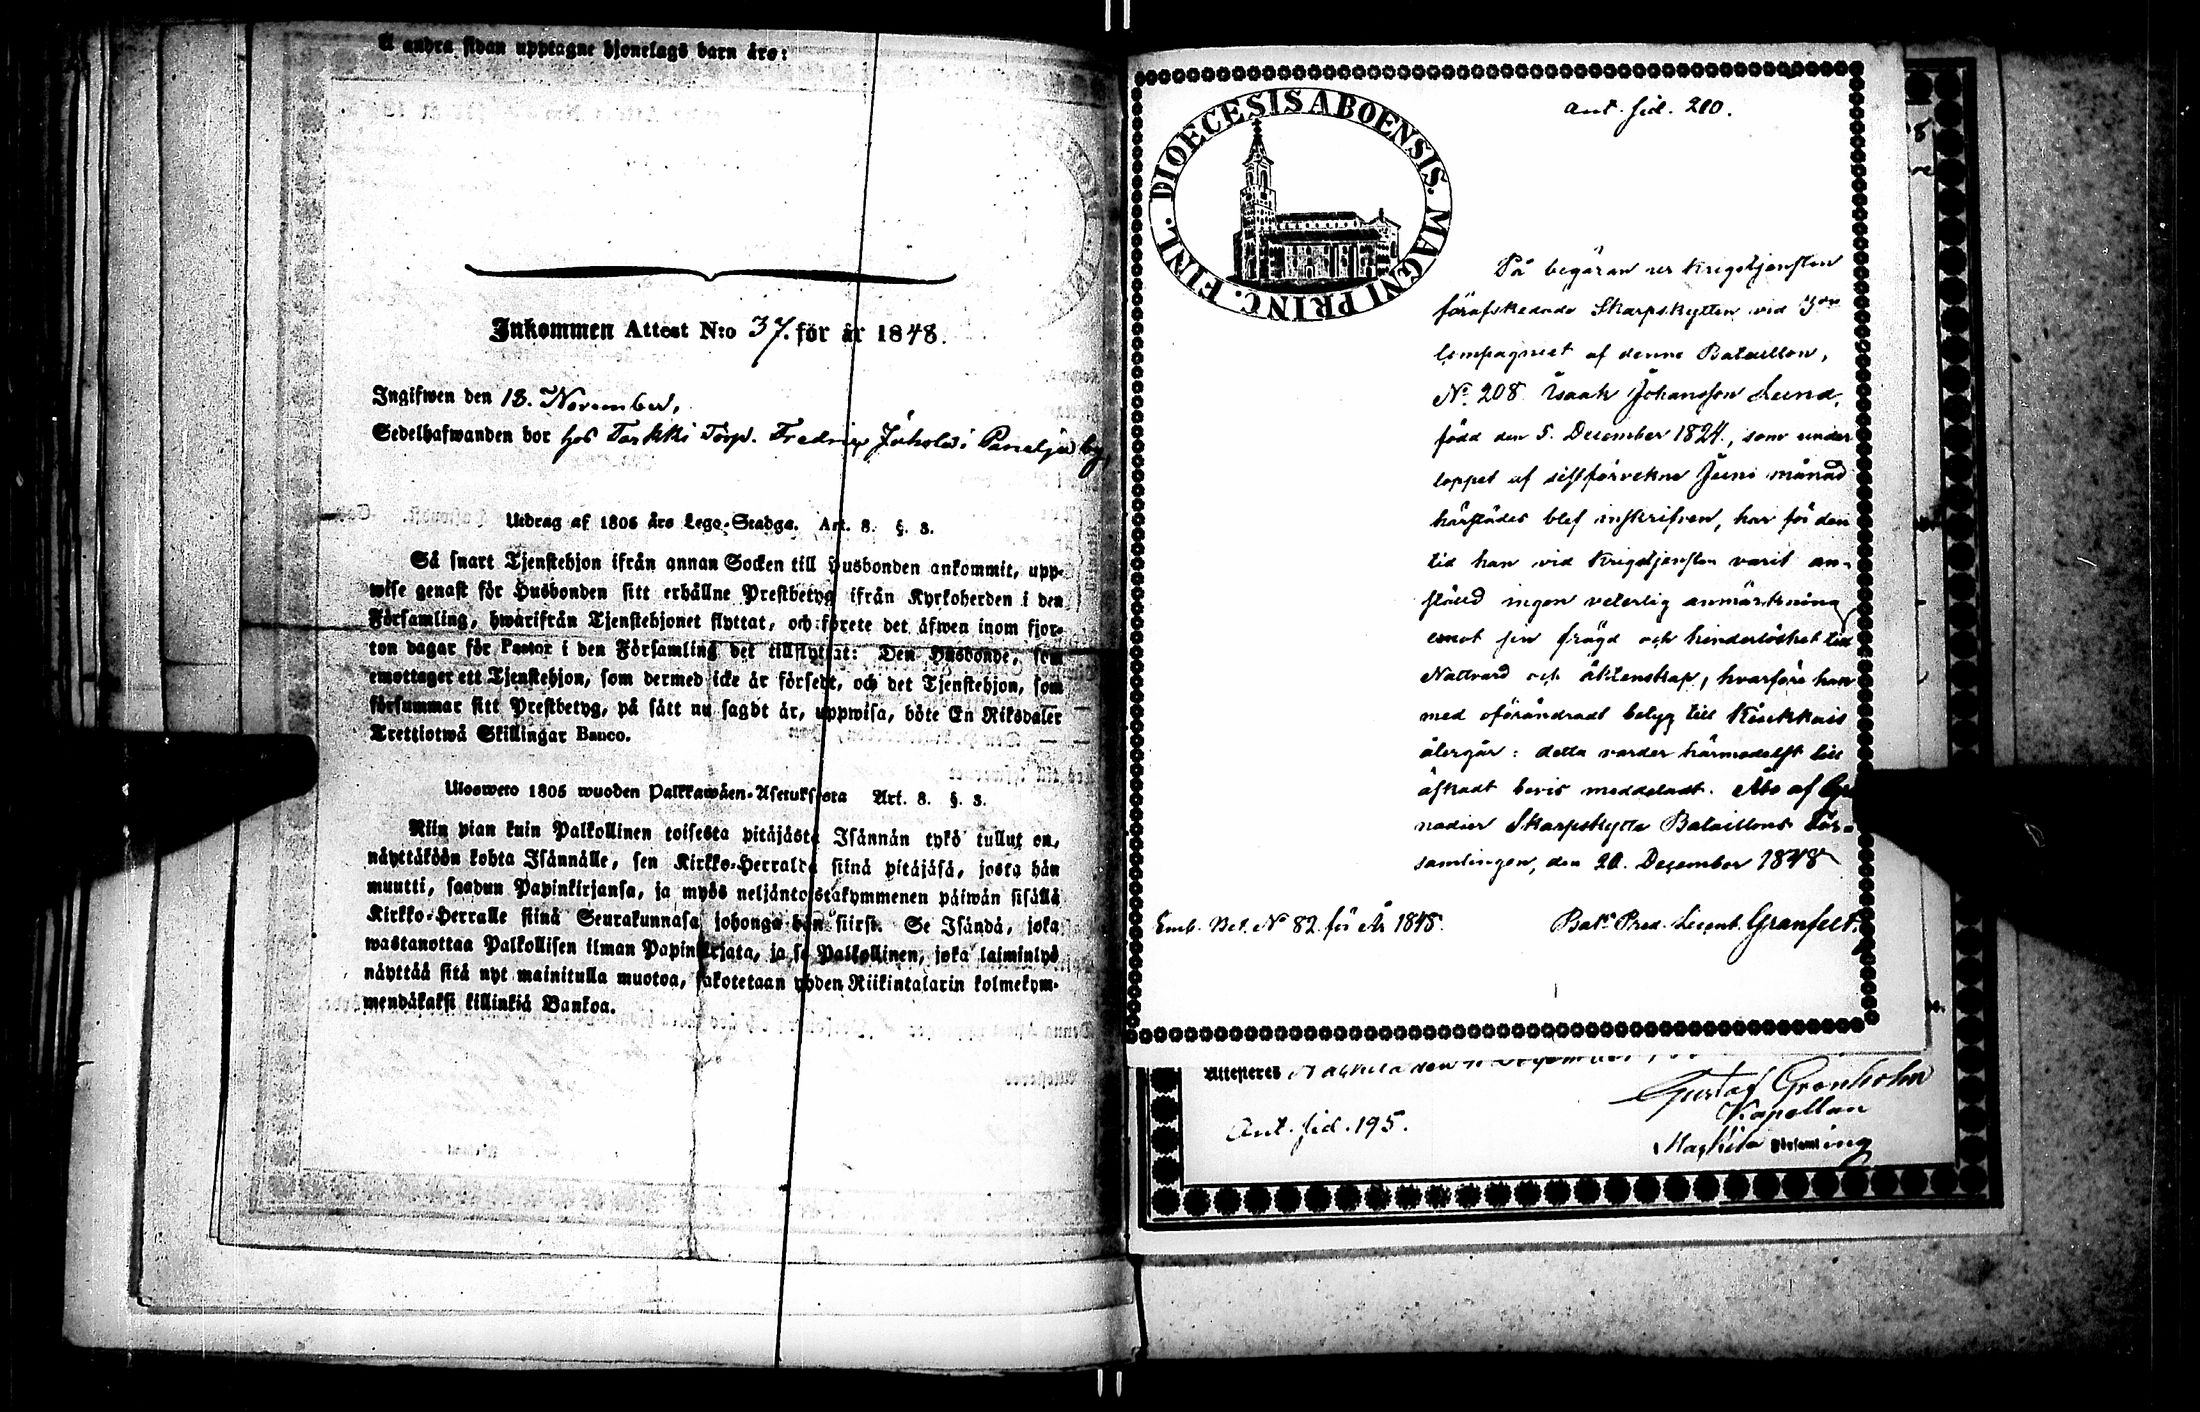 Å andra sidan upptagne hjonelags barn äro:
Inkommen Attest N:o 37. för år 1848.
Ingifwen den 13. November,
Sedelhafwanden bor hos Torp. Fredrix i Panelja by
Utdrag af 1805 års Lego-Stadga. Art. 8. §. 3.
Så snart Tjenstehjon ifrån annan Socken till Husbonden ankommit, upp-
wise genast för Husbonden sitt erhållne Prestbetyg ifrån Kyrkoherden i den
Församling, hwarifrån Tjenstehjonet flyttat, och förete det äfwen inom fjor-
ton dagar för Pastor i den Församling det tillflyttat: Den Husbonde, som
emottager ett Tjenstehjon, som dermed icke är försedt, och det Tjenstehjon, som
försummar sitt Prestbetyg, på sätt nu sagdt är, uppwisa, böte En Riksdaler
Trettiotwå Skillingar Banco.
Ulosweto 1805 wuoden Palkkawäen-Asetuksesta Art. 8. §. 3.
Niin pian kuin Palkollinen toisesta pitäjästä Isännän tykö tullut on,
näyttäköön kohta Isännälle, sen Kirkko-Herralda siinä pitäjäsä, josta hän
muutti, saadun Papinkirjansa, ja myös neljäntoistakymmenen päiwän sisällä
Kirkko-Herralle siinä Seurakunnasa johonga hän siirsi. Se Isändä, joka
wastanottaa Palkollisen ilman Papinkirjata, ja se Palkollinen, joka laiminlyö
näyttää sitä nyt mainitulla muotoa, sakotetaan yhden Riikintalarin kolmekym-
mendäkaksi killinkiä Bankoa.
DIOECESIS ABOENSIS. MAGNI PRINC. FINL.
Ant. sid. 210.
På begäran ur Krigstjensten
förafskedade Skarpskytten vid 3dje
Compagniet af denne Bataillon,
No. 208 Isaak Johansson Lund,
född den 5. December 1824., som under
loppet af sistförvekne Juni månad
härstädes blef inskrifven, har för den
tid han vid Krigstjensten varit an-
ställd ingen veterlig anmärkning
emot sin frägd och hinderlöshet till
Nattvard och äktenskap, hvarföre han
med oförändradt betyg till Kiukkais
återgår: detta varder härmedelst till
äskadt bevis meddeladt. Åbo af Gre
nadier Skarpskytte Bataillons För-
samlingen, den 20. December 1848
Emb. Bet. No 82. för År 1848.
Bats Pred. Granfelt.
Attesteres den
Gustaf Grönholm
Kapellan
Församling
Ant. sid. 195.